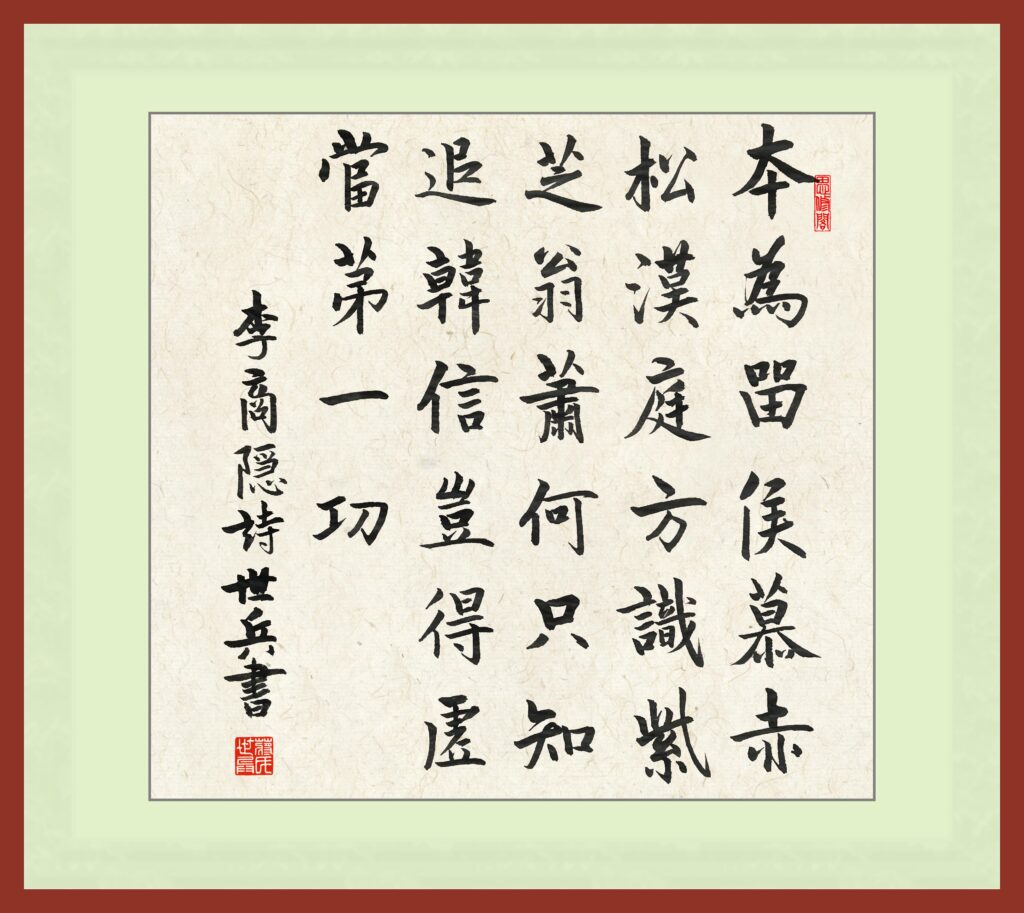 思修閣
本為留侯慕赤
松漢庭方識紫
芝翁蕭何只知
追韓信豈得虚
當苐一功
李商隐詩世兵書